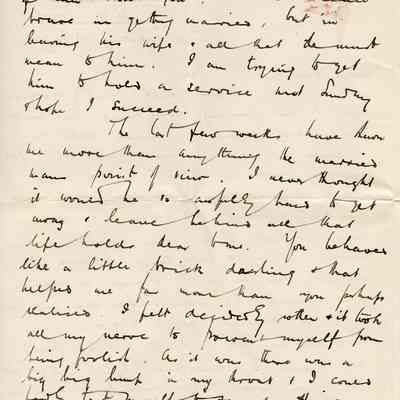 in getting married, but in
leaving his wife & all that she must
mean to him. I am trying to get
him to hold a service next Sunday
& hope I succeed.
The last few weeks have shown
me more than anything the married
mans point of view. I never thought
it would be so awfully hard to get
away & leave behind all that
life holds dear to me. You behaved
like a little brick darling & that
helped me far more than you perhaps
realised. I felt decidedly rotten & it took
all my nerve to prevent myself from
being foolish. As it was there was a
big big lump in my throat & I could